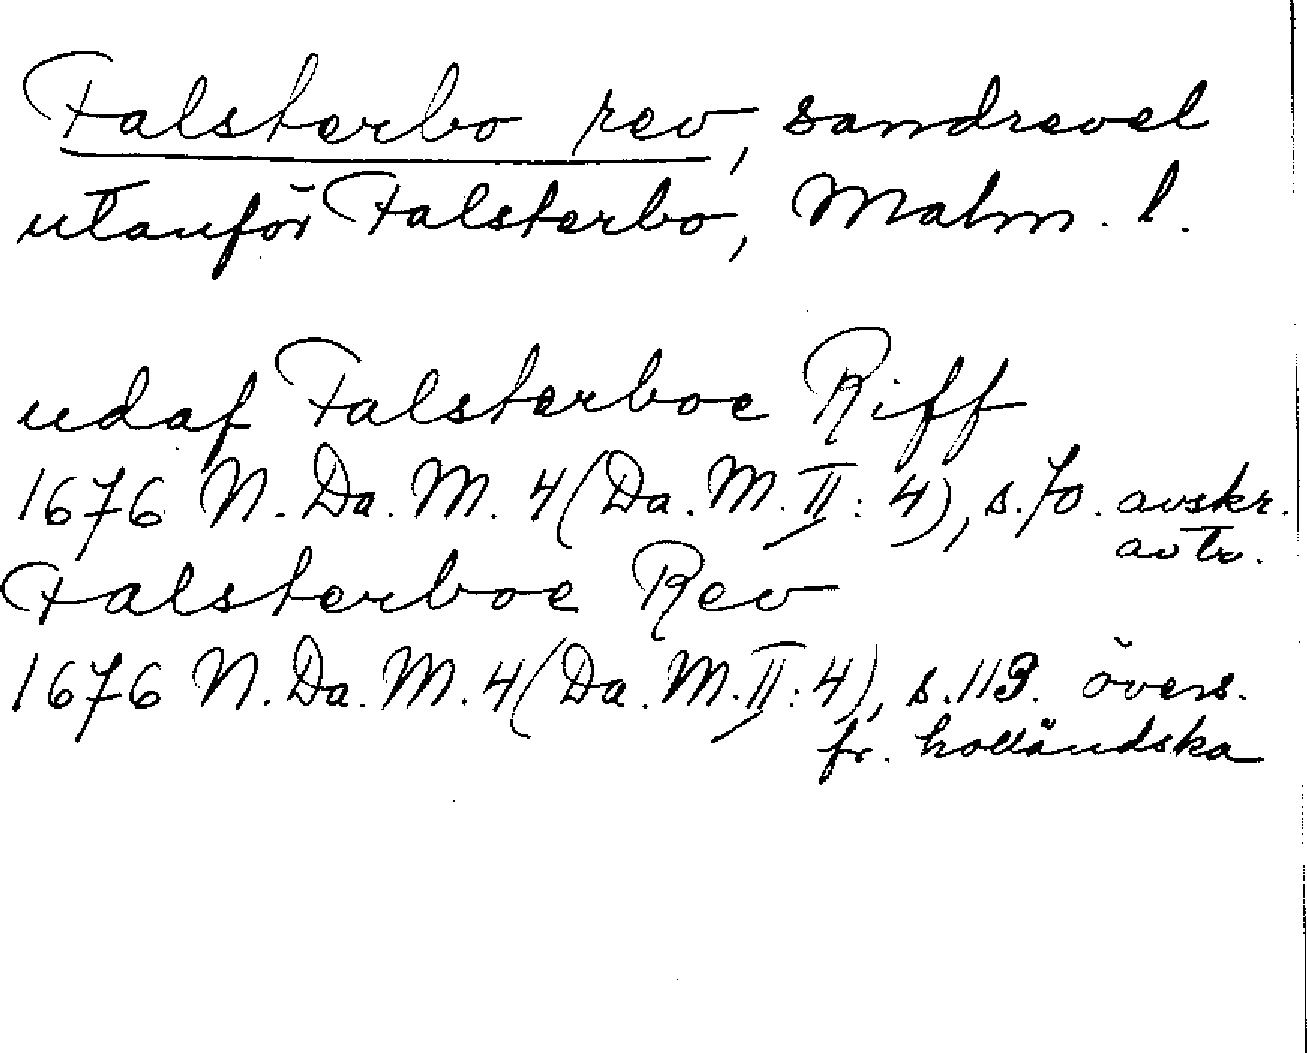 Falsterbo rev, sandrevel
utanför Falsterbo, Malm. l.
udaf Falsterboe Riff
1676 N. Da. M. 4 (Da. M. II: 4), s. 70. avskr.
av tr.
Falsterboe Rev
1676 N. Da. M. 4 (Da. M. II: 4), s. 113. övers.
fr. holländska